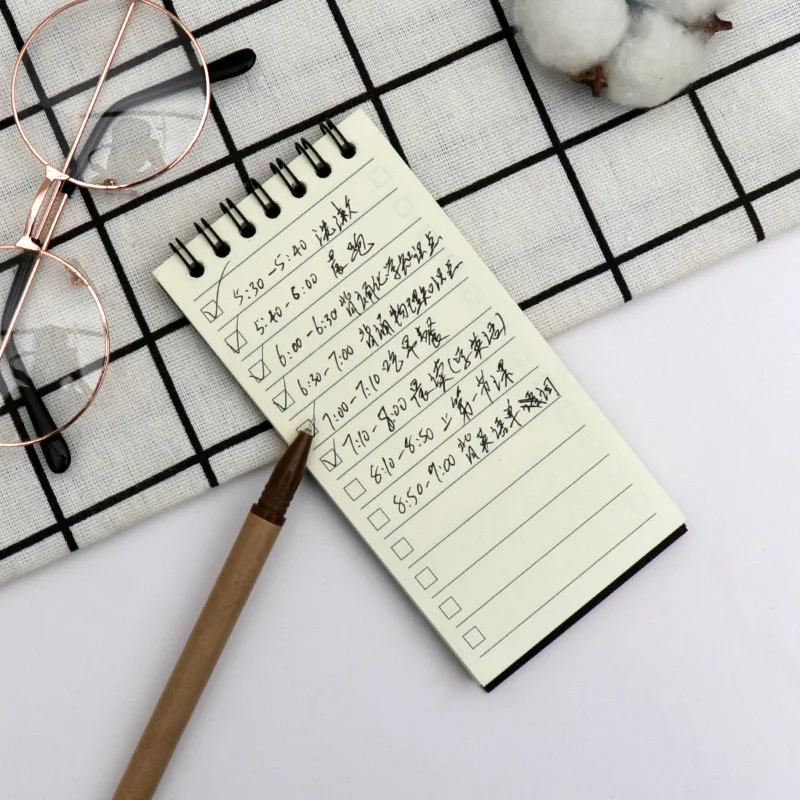 5:30-5:40 洗漱
5:40-6:00 晨跑
6:00-6:30 背诵化学知识点
6:30-7:00 背诵物理知识点
7:00-7:10 吃早餐
7:10-8:00 晨读(学英语)
8:10-8:50 上第一节课
8:50-9:00 背英语单词